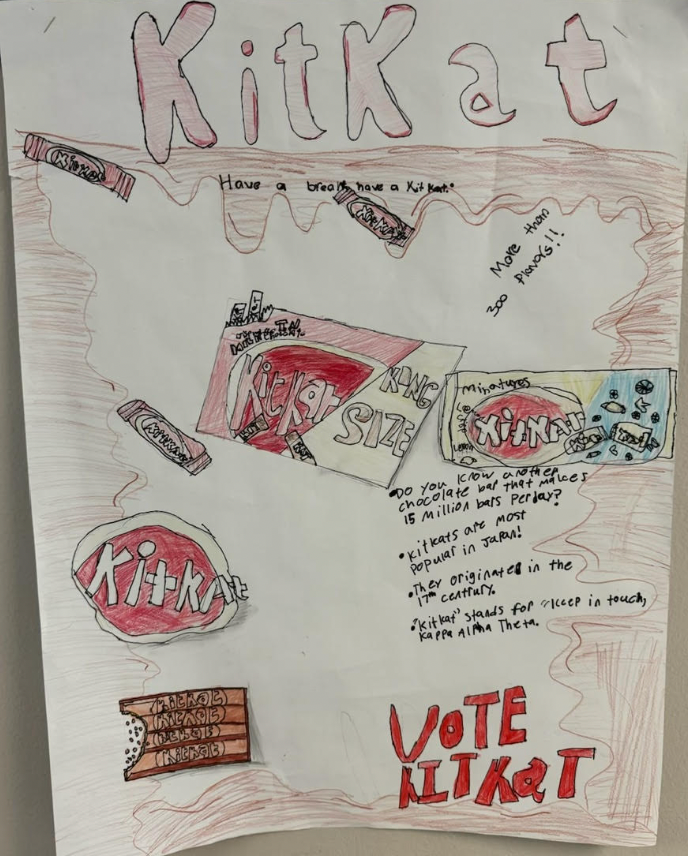 KitKat
KitKat
Have a break, have a Kit Kat."
KitKat
More than
300 flavors!!
KitKat
KING
SIZE
miniatures
KitKat
KitKat
• Do you know another
chocolate bar that makes
15 Million bars Per day?
• Kitkats are most
Popular in Japan!
• They originated in the
17th century.
• "Kitkat" stands for "Keep in touch,
Kappa Alpha Theta.
KitKat
VOTE
KITKaT